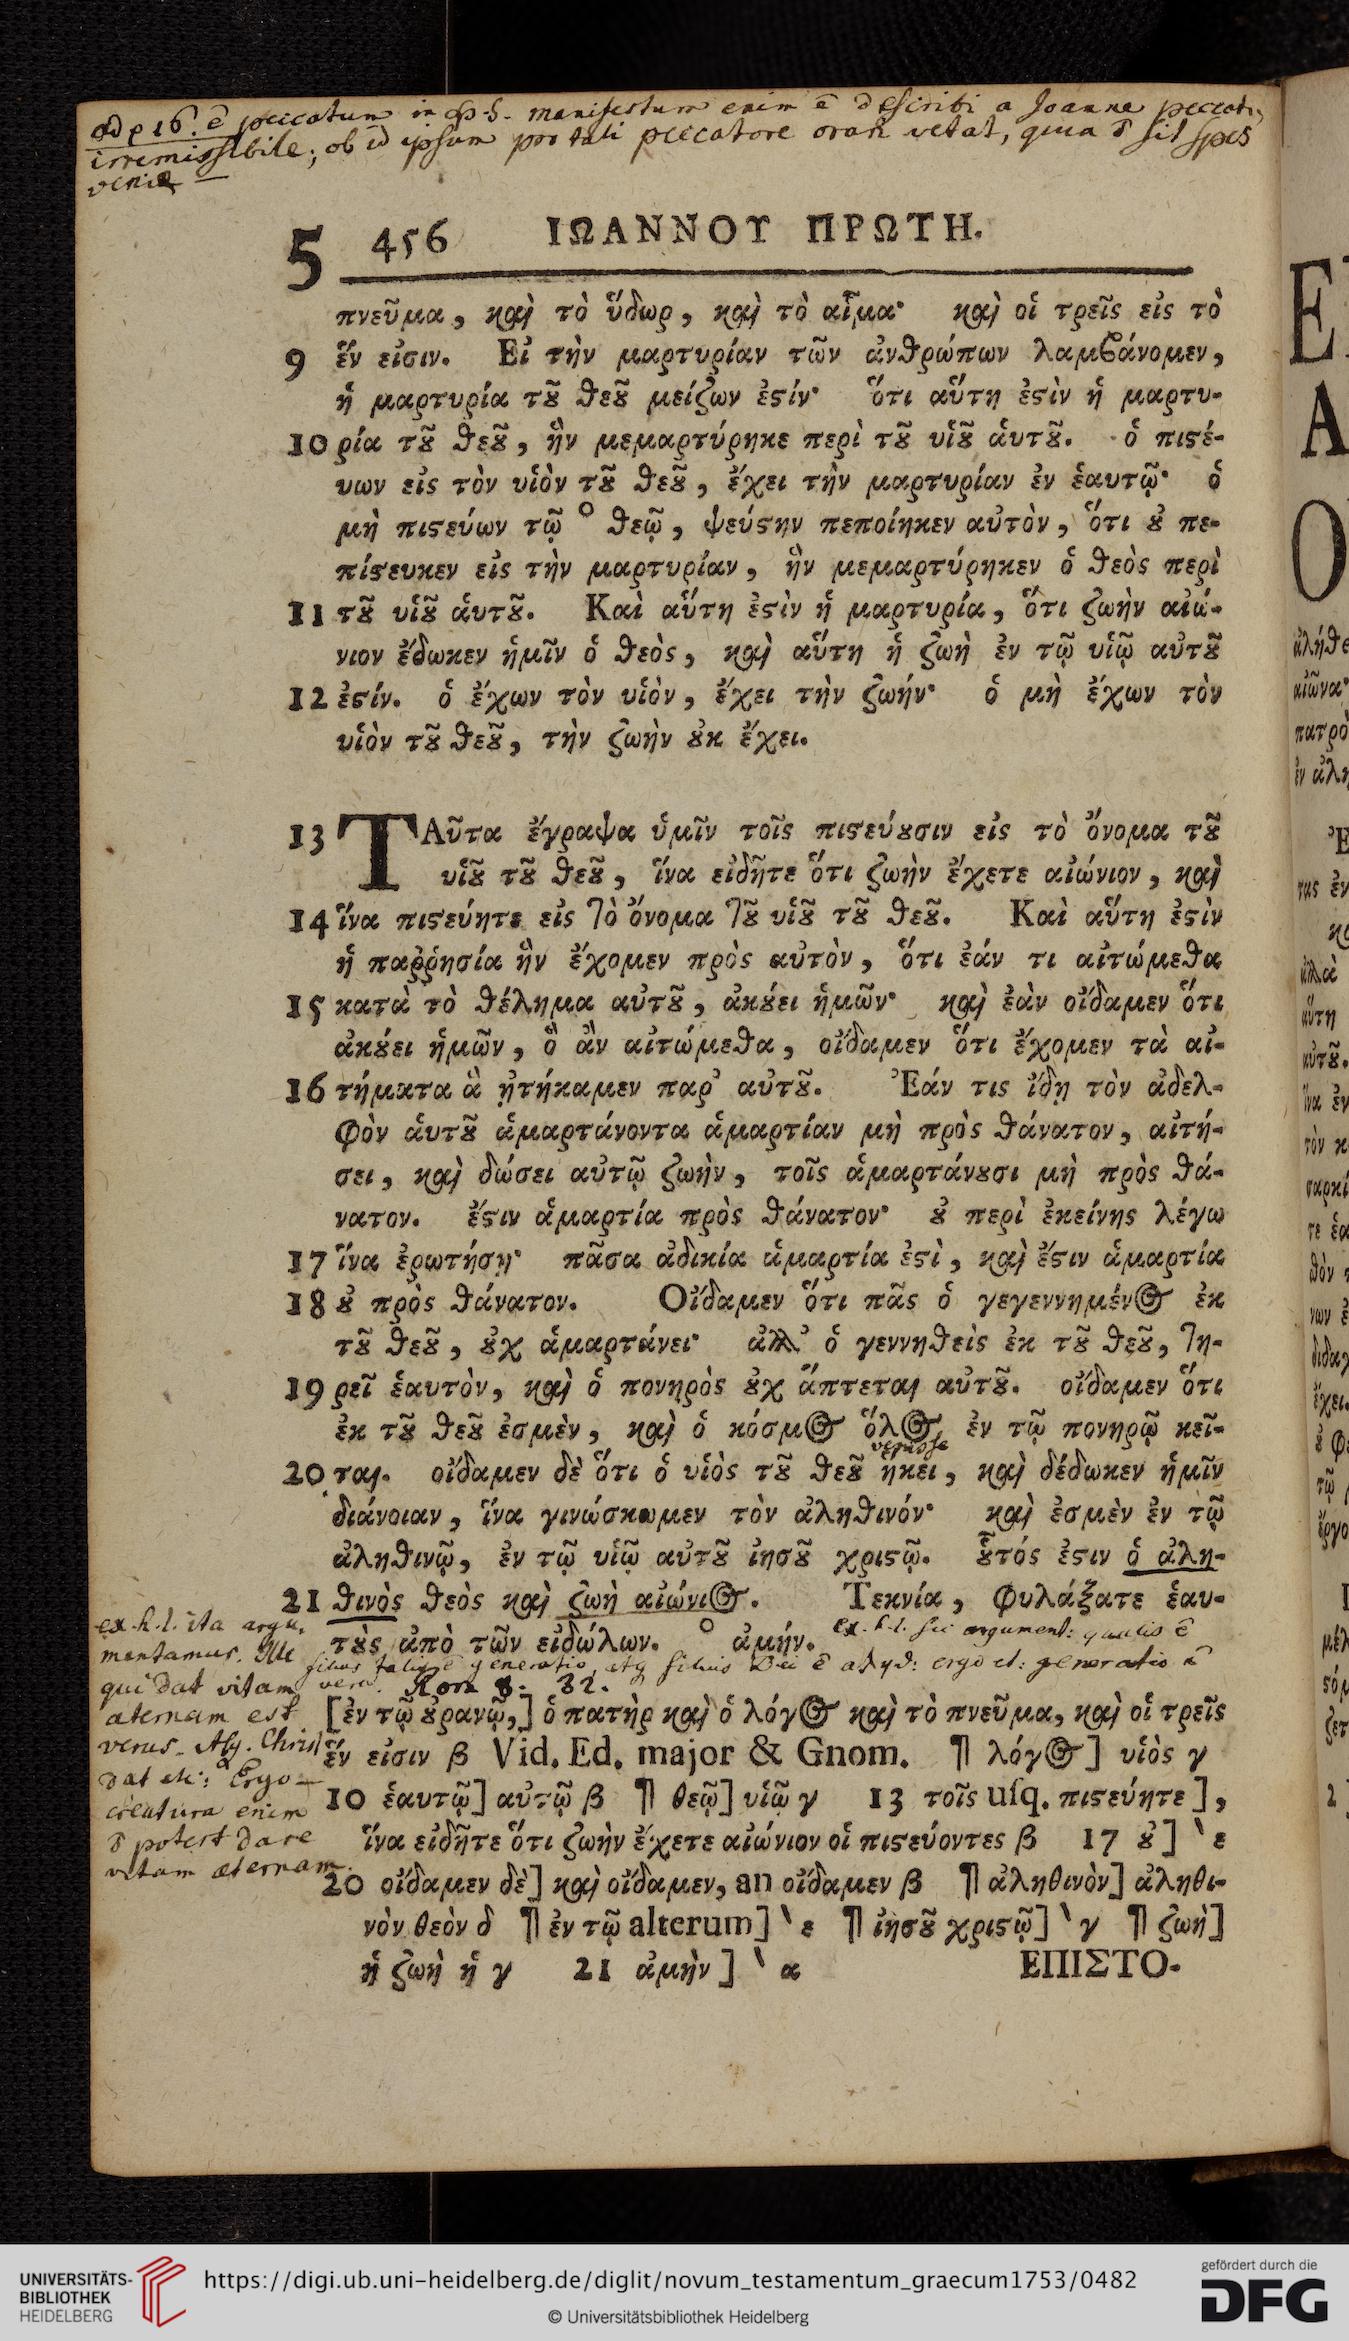 irremissibile; ob id ipsum pro tali peccatore orari vetat, quia sit spes
veniæ
5 456 ΙΩΑΝΝΟΥ ΠΡΩΤΗ.
πνεῦμα, καὶ τὸ ὕδωρ, καὶ τὸ αἷμα· καὶ οἱ τρεῖς εἰς τὸ
9 ἕν εἰσιν. Εἰ τὴν μαρτυρίαν τῶν ἀνθρώπων λαμβάνομεν,
ἡ μαρτυρία τȣ͂ θεȣ͂ μείζων ἐϛίν· ὅτι αὕτη ἐϛὶν ἡ μαρτυ-
10 ρία τȣ͂ θεȣ͂, ἣν μεμαρτύρηκε περὶ τȣ͂ υἱȣ͂ ἁυτȣ͂. ὁ πιϛέ-
υων εἰς τὸν υἱὸν τȣ͂ θεȣ͂, ἔχει τὴν μαρτυρίαν ἐν ἑαυτῷ· ὁ
μὴ πιϛεύων τῷ ° θεῷ, ψεύϛην πεποίηκεν αὐτὸν, ὅτι ȣ̓ πε-
πίϛευκεν εἰς τὴν μαρτυρίαν, ἣν μεμαρτύρηκεν ὁ θεὸς περὶ
11 τȣ͂ υἱȣ͂ ἁυτȣ͂. Καὶ αὕτη ἐϛὶν ἡ μαρτυρία, ὅτι ζωὴν αἰώ-
νιον ἔδωκεν ἡμῖν ὁ θεὸς, καὶ αὕτη ἡ ζωὴ ἐν τῷ υἱῷ αὐτȣ͂
12 ἐϛίν. ὁ ἔχων τὸν υἱὸν, ἔχει τὴν ζωήν· ὁ μὴ ἔχων τὸν
υἱὸν τȣ͂ θεȣ͂, τὴν ζωὴν ȣ̓κ ἔχει.
13 ΤΑῦτα ἔγραψα ὑμῖν τοῖς πιϛεύȣσιν εἰς τὸ ὄνομα τȣ͂
υἱȣ͂ τȣ͂ θεȣ͂, ἵνα εἰδῆτε ὅτι ζωὴν ἔχετε αἰώνιον, καὶ
14 ἵνα πιϛεύητε εἰς τὸ ὄνομα τȣ͂ υἱȣ͂ τȣ͂ θεȣ͂. Καὶ αὕτη ἐϛὶν
ἡ παῤῥησία ἣν ἔχομεν πρὸς αὐτὸν, ὅτι ἐάν τι αἰτώμεθα
15 κατὰ τὸ θέλημα αὐτȣ͂, ἀκȣ́ει ἡμῶν· καὶ ἐὰν οἴδαμεν ὅτι
ἀκȣ́ει ἡμῶν, ὃ ἂν αἰτώμεθα, οἴδαμεν ὅτι ἔχομεν τὰ αἰ-
16 τήματα ἃ ᾐτήκαμεν παρ᾽ αὐτȣ͂. Ἐάν τις ἴδῃ τὸν ἀδελ-
φὸν ἁυτȣ͂ ἁμαρτάνοντα ἁμαρτίαν μὴ πρὸς θάνατον, αἰτή-
σει, καὶ δώσει αὐτῷ ζωὴν, τοῖς ἁμαρτάνȣσι μὴ πρὸς θά-
νατον. ἔϛιν ἁμαρτία πρὸς θάνατον· ȣ̓ περὶ ἐκείνης λέγω
17 ἵνα ἐρωτήσῃ· πᾶσα ἀδικία ἁμαρτία ἐϛὶ, καὶ ἔϛιν ἁμαρτία
18 ȣ̓ πρὸς θάνατον. Οἴδαμεν ὅτι πᾶς ὁ γεγεννημένος ἐκ
τȣ͂ θεȣ͂, ȣ̓χ ἁμαρτάνει· ἀλλ᾽ ὁ γεννηθεὶς ἐκ τȣ͂ θεȣ͂, τη-
19 ρεῖ ἑαυτὸν, καὶ ὁ πονηρὸς ȣ̓χ ἅπτεται αὐτȣ͂. οἴδαμεν ὅτι
ἐκ τȣ͂ θεȣ͂ ἐσμὲν, καὶ ὁ κόσμος ὅλος ἐν τῷ πονηρῷ κεῖ-
venisse
20 ται. οἴδαμεν δὲ ὅτι ὁ υἱὸς τȣ͂ θεȣ͂ ἥκει, καὶ δέδωκεν ἡμῖν
διάνοιαν, ἵνα γινώσκωμεν τὸν ἀληθινόν· καὶ ἐσμὲν ἐν τῷ
ἀληθινῷ, ἐν τῷ υἱῷ αὐτȣ͂ ἰησȣ͂ χριϛῷ. ȣ̔͂τός ἐϛιν ὁ ἀλη-
21 θινὸς θεὸς καὶ ζωὴ αἰώνιος. Τεκνία, φυλάξατε ἑαυ-
τȣ̀ς ἀπὸ τῶν εἰδώλων. ° ἀμήν.
ex. h. l. ita argu-
mentamur. Ille
qui dat vitam
æternam est
verus. Atq. Christ
dat etc: Ergo —
creatura enim
potest dare
vitam æternam.
[ἐν τῷ ȣ̓ρανῷ,] ὁ πατὴρ καὶ ὁ λόγος καὶ τὸ πνεῦμα, καὶ οἱ τρεῖς
ἕν εἰσιν β Vid. Ed. major & Gnom. ¶ λόγος] υἱὸς γ
10 ἑαυτῷ] αὐτῷ β ¶ θεῷ] υἱῷ γ 13 τοῖς uſq. πιϛεύητε],
ἵνα εἰδῆτε ὅτι ζωὴν ἔχετε αἰώνιον οἱ πιϛεύοντες β 17 ȣ̓] ‵ ε
20 οἴδαμεν δὲ] καὶ οἴδαμεν, an οἴδαμεν β ¶ ἀληθινὸν] ἀληθι-
νὸν θεὸν δ ¶ ἐν τῷ alterum] ‵ ε ¶ ἰησȣ͂ χριϛῷ] ‵ γ ¶ ζωὴ]
ἡ ζωὴ ἡ γ 21 ἀμὴν] ‵ α ΕΠΙΣΤΟ-
UNIVERSITÄTS-
BIBLIOTHEK
HEIDELBERG
https://digi.ub.uni-heidelberg.de/diglit/novum_testamentum_graecum1753/0482
© Universitätsbibliothek Heidelberg
gefördert durch die
DFG